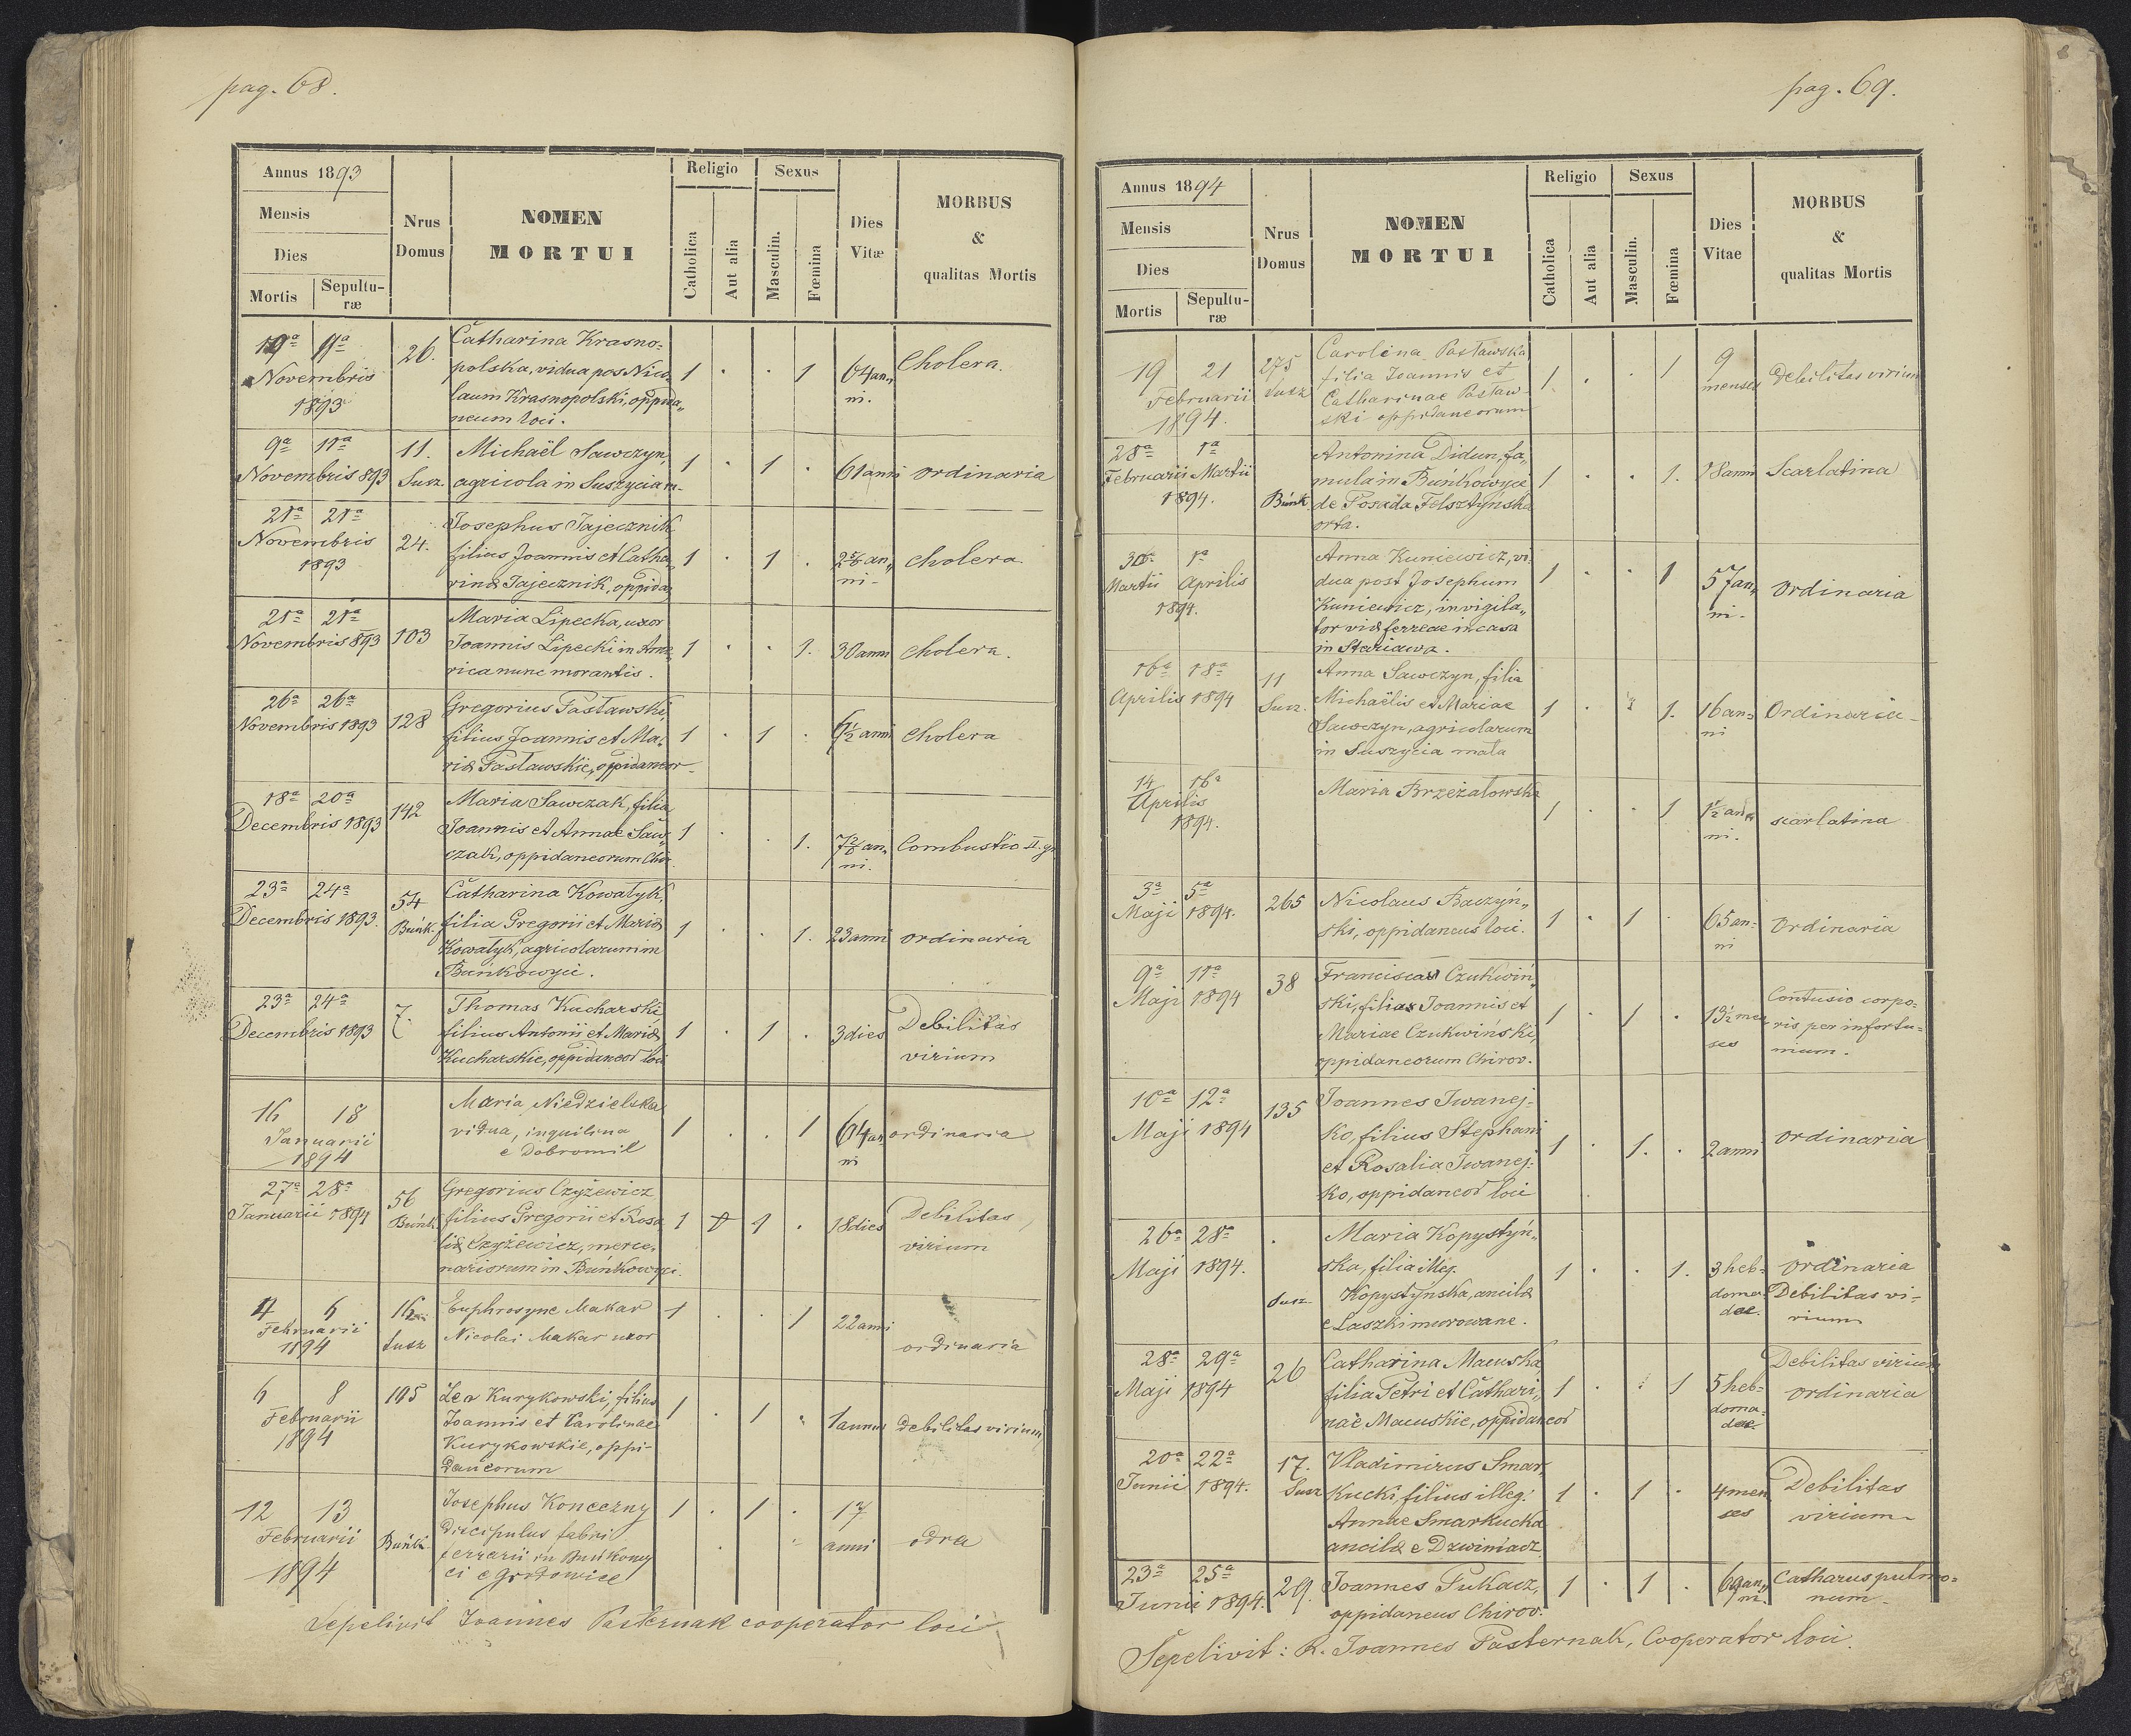 pag. 68.
Annus 1893
Mensis
Dies
Mortis
Sepultu-
ræ
Nrus
Domus
NOMEN
MORTUI
Religio
Catholica
Aut alia
Sexus
Masculin.
Fœmina
Dies
Vitæ
MORBUS
&
qualitas Mortis
Novembris
1893
26.
Catharina Krasno=
polska, vidua pos Nico=
laum Krasnopolski, oppida„
neum loci.
1 . . 1
64 an„
ni.
Cholera.
9a 11a
Novembris 893
11.
Susz.
Michaël Sawczyn,
agricola in Suszyciam.
1 . 1 .
61 anni
ordinaria
21a 21a
Novembris
1893
24.
Josephus Jajecznik
filius Joannis et Catha„
rinæ Jajecznik, oppida„
1 . 1 .
an„
ni-
cholera
21a 21a
Novembris 893
103
Maria Lipecka, uxor
Joannis Lipecki in Ame„
rica nunc morantis.
1 . . 1.
30 anni
cholera.
26a 26a
Novembris 1893
128
Gregorius Pasławski,
filius Joannis et Ma„
riæ Pasławskie, oppidaneor-
1 . 1 .
anni
cholera
18a 20a
Decembris 1893
142
Maria Sawczak, filia
Joannis et Annae Saw„
czak, oppidaneorum Chir.
1 . . 1.
an„
ni.
Combustio II. gr
23a 24a
Decembris 1893.
54
Buńk.
Catharina Kowalyk,
filia Gregorii et Mariæ
Kowalyk, agricolarum in
Buńkowyci.
1 . . 1.
23 anni
ordinaria
23a 24a
Decembris 1893
7.
Thomas Kucharski,
filius Antonii et Mariæ
Kucharskie, oppidaneor loci
1 . 1 .
3 dies
Debilitas
virium
16 18
Januarii
1894
Maria Niedzielska
vidua, inquilina
e Dobromil
1 . . 1
64 an
ni
ordinaria
27a 28a
Januarii 1894
56
Buńk.
Gregorius Czyżewicz
filius Gregorii et Rosa
liæ Czyżewicz, merce„
nariorum in Buńkowyci.
1 1 .
18 dies
Debilitas
virium
4 6
Februarii
1894
16
Susz
Euphrosyne Makar
Nicolai Makar uxor
1 . . 1
22 anni
ordinaria
6 8
Februarii
1894
105
Leo Kurykowski, filius
Joannis et Carolinae
Kurykowskie, oppi-
daneorum
1 . 1 .
1 annus
debilitas virium
12 13
Februarii
1894
Buńk.
Josephus Koneczny
discipulus fabri
ferrarii in Buńkowy
ci e Grodowice
1 . 1 .
17
anni
odra
Sepelivit Joannes Pasternak cooperator loci

pag. 69.
Annus 1894
Mensis
Dies
Mortis
Sepultu-
ræ
Nrus
Domus
NOMEN
MORTUI
Religio
Catholica
Aut alia
Sexus
Masculin.
Fœmina
Dies
Vitae
MORBUS
&
qualitas Mortis
19 21
Februarii
1894.
275
Susz
Carolina Pasławska
filia Joannis et
Catharinae Pasław-
ski oppidaneorum
1 . . 1
9
menses
debilitas virium
28a 1a
Februarii Martii
1894.
Buńk
Antonina Didun, fa„
mula in Buńkowyci
de Posada Felsztyńska
orta.
1 . . 1.
18 anni
Scarlatina
30a 1a
Martii Aprilis
1894.
Anna Kuniewicz, vi„
dua post Josephum
Kuniewicz, invigila„
tor viæ ferreae in casa
in Stariawa.
1 . . 1
57 an„
ni.
ordinaria
16a 18a
Aprilis 1894
11
Susz.
Anna Sawczyn, filia
Michaëlis et Mariae
Sawczyn, agricolarum
in Suszycia mała
1 . 1.
16 an=
ni
Ordinaria-
14 16a
Aprilis
1894.
Maria Brzeżatowska
1 . . 1
1½ an„
ni.
scarlatina
3a 5a
Maji 1894.
265
Nicolaus Baczyń„
ski, oppidaneus loci.
1 . 1 .
65 an=
ni
ordinaria
9a 11a
Maji 1894
38
Franciscus Czukwiń„
ski, filius Joannis et
Mariae Czukwinskie,
oppidaneorum Chirov.
1 . 1 .
13½ men
ses
Contusio corpo=
ris per infortu=
nium.
10a 12a
Maji 1894
135
Joannes Iwanej-
ko, filius Stephani
et Rosalia Iwanej-
ko, oppidaneor loci
1 . 1. .
2 anni
ordinaria
26a 28a
Maji 1894.
.
Susz.
Maria Kopystyń„
ska, filia illeg.
Kopystynska, ancilæ
e Laszki murowane.
1 . . 1.
3 heb=
doma=
dae.
ordinaria
Debilitas vi=
rium
28a 29a
Maji 1894
26
Catharina Macuska
filia Petri et Cathari„
nae Macuskie, oppidaneor
1 . 1
5 heb=
doma=
dae
Debilitas virium
ordinaria
20a 22a
Junii 1894.
17.
Susz
Vladimirus Smar„
kucki, filius illeg.
Annae Smarkucka
ancilæ e Dzwiniacz
1 . 1 .
4 men
ses
Debilitas
virium
23a 25a
Junii 1894.
29.
Joannes Pukacz,
oppidaneus Chirov.
1 . 1 .
69 an„
ni.
Catharus pulmo=
num.
Sepelivit: R. Joannes Pasternak, Cooperator loci.